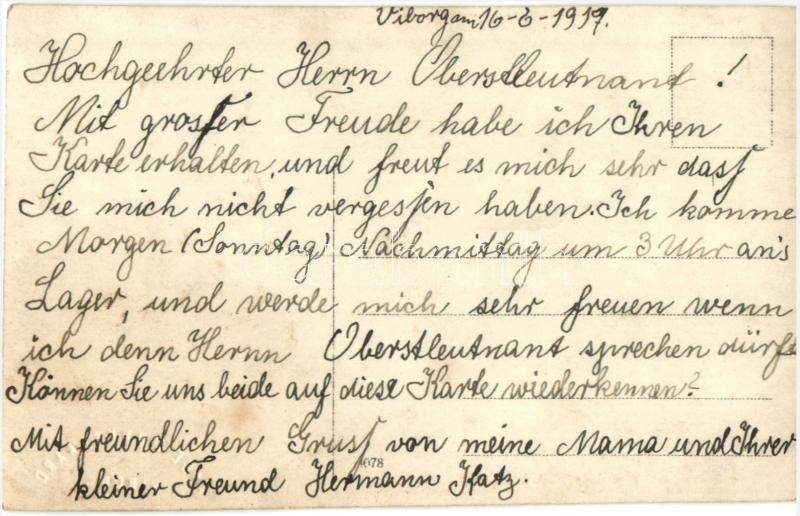 Viborg am 16-6-1917.
Hochgeehrter Herrn Oberstleutnant!
Mit grosser Freude habe ich Ihren
Karte erhalten, und freut es mich sehr dass
Sie mich nicht vergessen haben. Ich komme
Morgen (Sonntag) Nachmittag um 3 Uhr an's
Lager, und werde mich sehr freuen wenn
ich denn Hernn Oberstleutnant sprechen dürfte
Können Sie uns beide auf diese Karte wiederkennen?
Mit freundlichen Gruss von meine Mama und Ihrer
4078
kleiner Freund Hermann Katz.